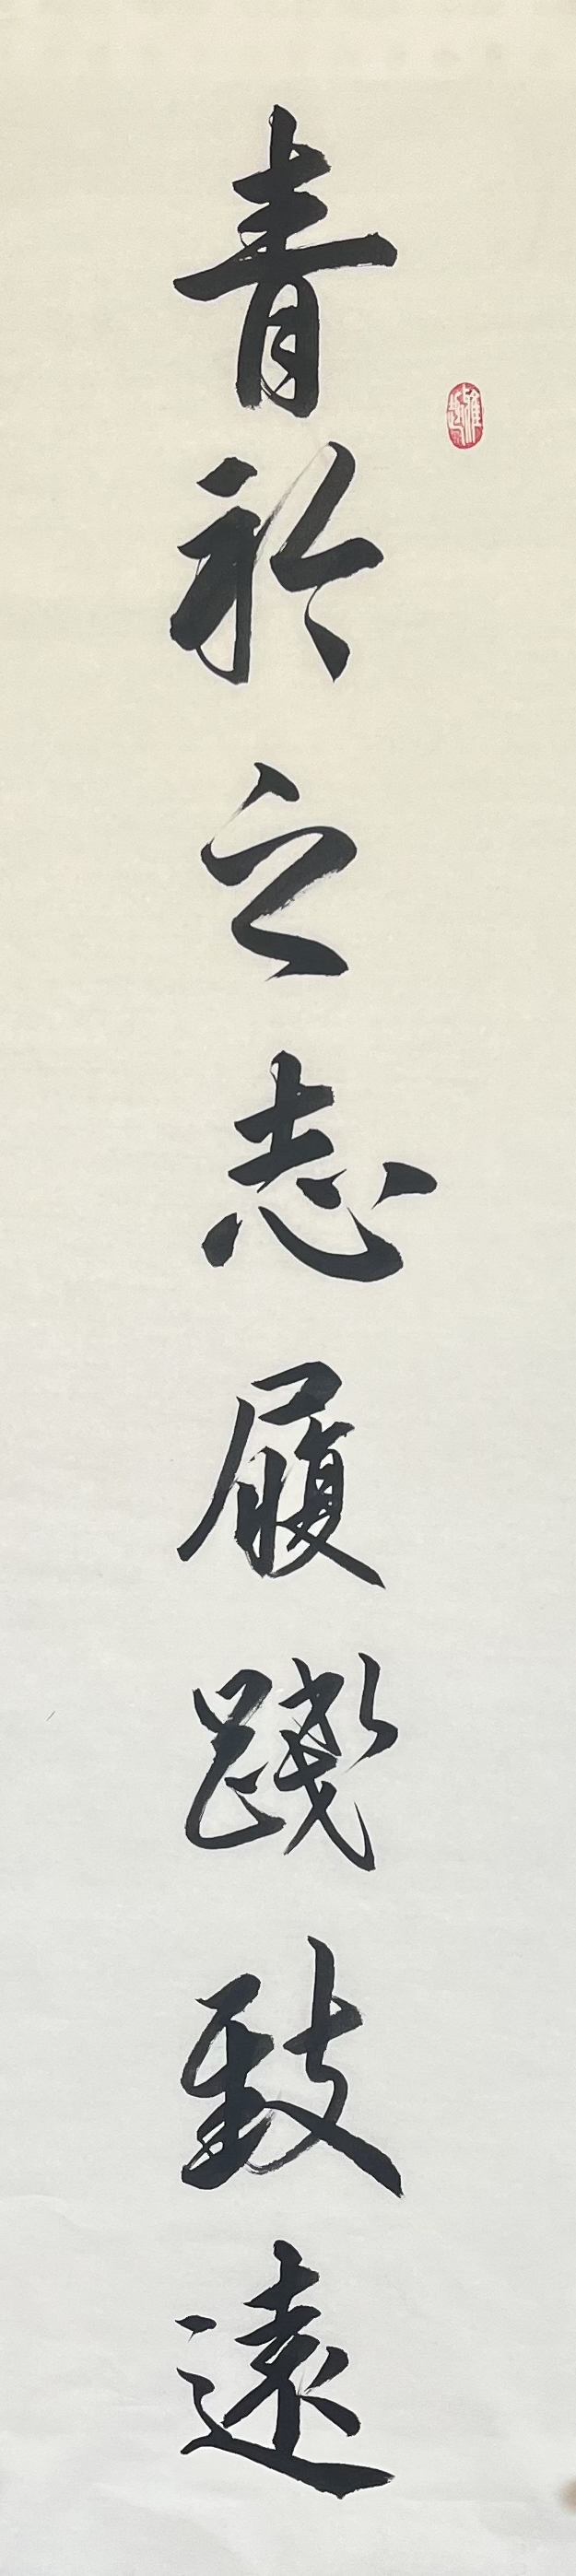 青於之志履踐致遠